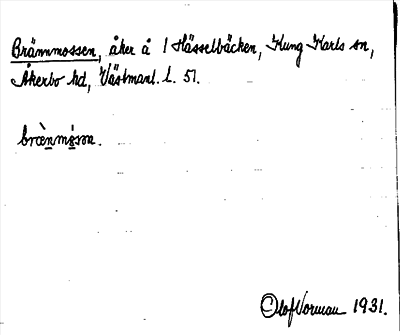 Brännmossen, åker å 1 Hässelbäcken, Kung Karls sn,
Åkerbo hd, Västmanl. l. 51.
bræ̀nmåsɷn.
Olof Norman 1931.